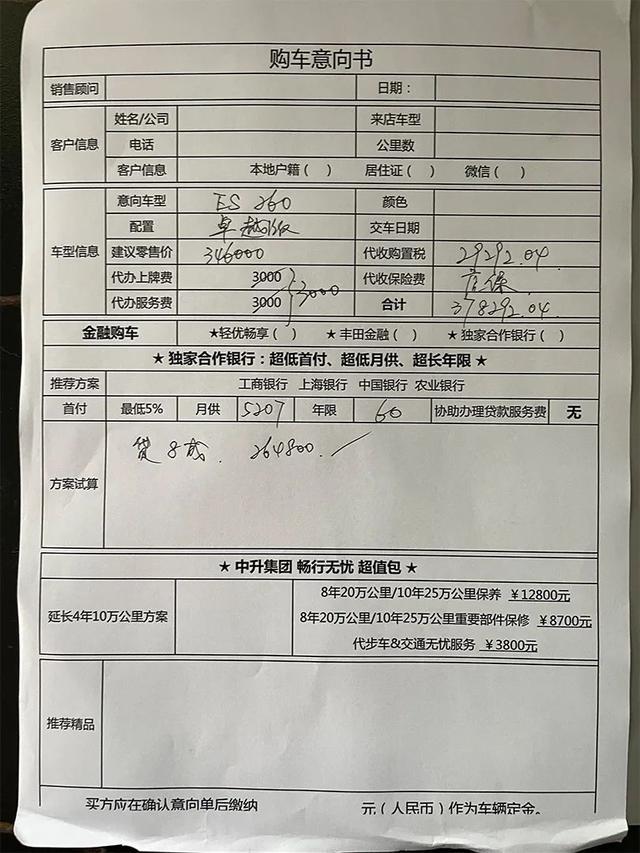 购车意向书
销售顾问 日期：
客户信息 姓名/公司 来店车型
电话 公里数
客户信息 本地户籍（ ） 居住证（ ） 微信（ ）
车型信息 意向车型 ES 260 颜色
配置 卓越版 交车日期
建议零售价 346000 代收购置税 29292.04
代办上牌费 3000 代收保险费
代办服务费 3000 3000 合计 378292.04
金融购车 ★轻优畅享（ ） ★丰田金融（ ） ★独家合作银行（ ）
★ 独家合作银行：超低首付、超低月供、超长年限 ★
推荐方案 工商银行 上海银行 中国银行 农业银行
首付 最低5% 月供 5207 年限 60 协助办理贷款服务费 无
方案试算 贷8成. 264800.
★ 中升集团 畅行无忧 超值包 ★
延长4年10万公里方案 8年20万公里/10年25万公里保养 ￥12800元
8年20万公里/10年25万公里重要部件保修 ￥8700元
代步车&交通无忧服务 ￥3800元
推荐精品
买方应在确认意向单后缴纳 元（人民币）作为车辆定金。